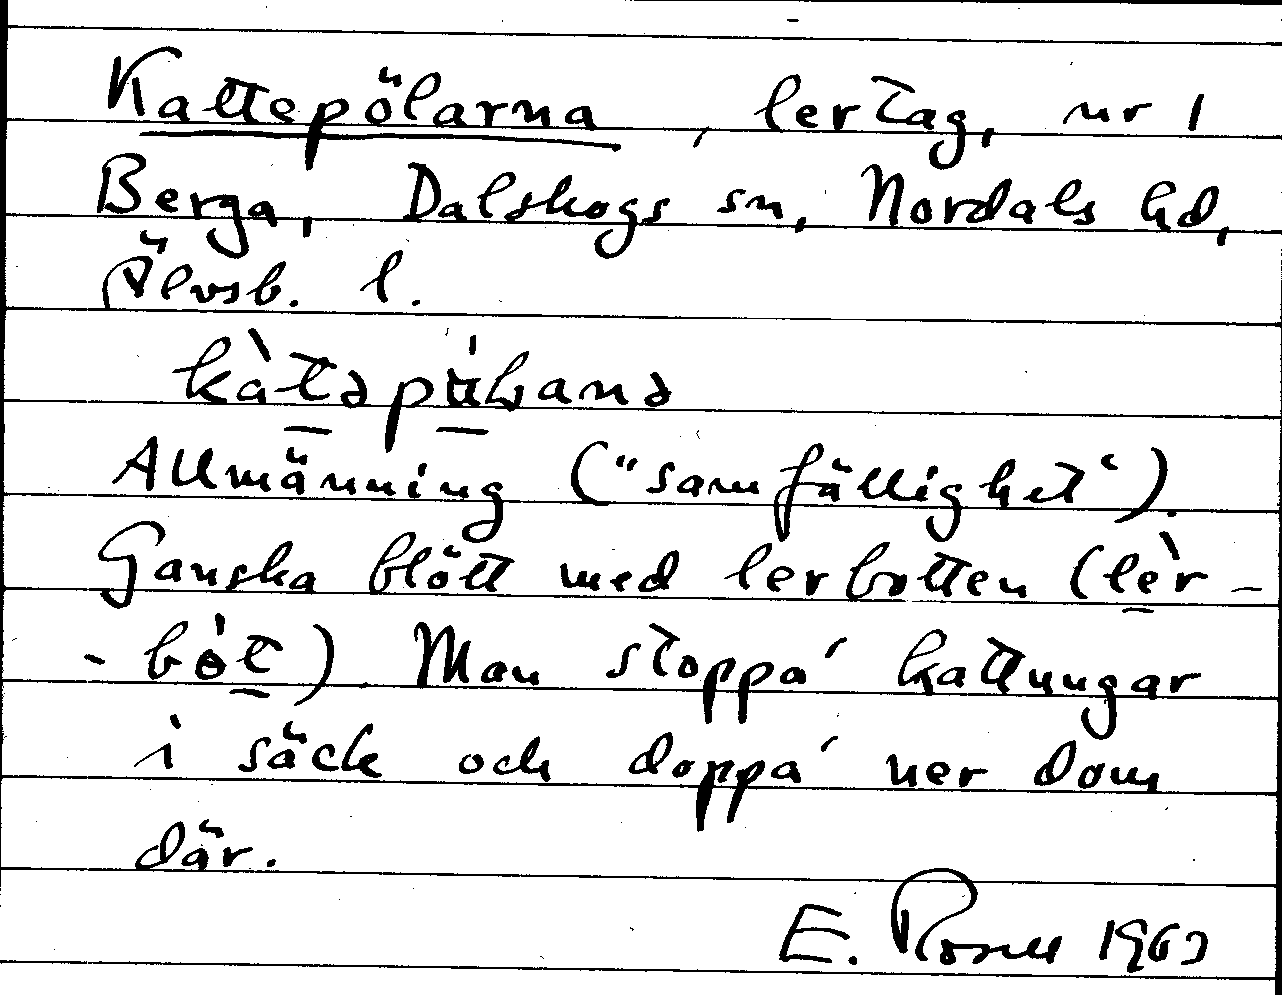 Kattepölarna, lertag, nr 1
Berga, Dalskogs sn, Nordals hd,
Älvsb. l.
Allmänning ("samfällighet").
Ganska blött med lerbotten (lèr-
-bòt). Man stoppa' kattungar
i säck och doppa' ner dom
där.
E. Rosell 1963